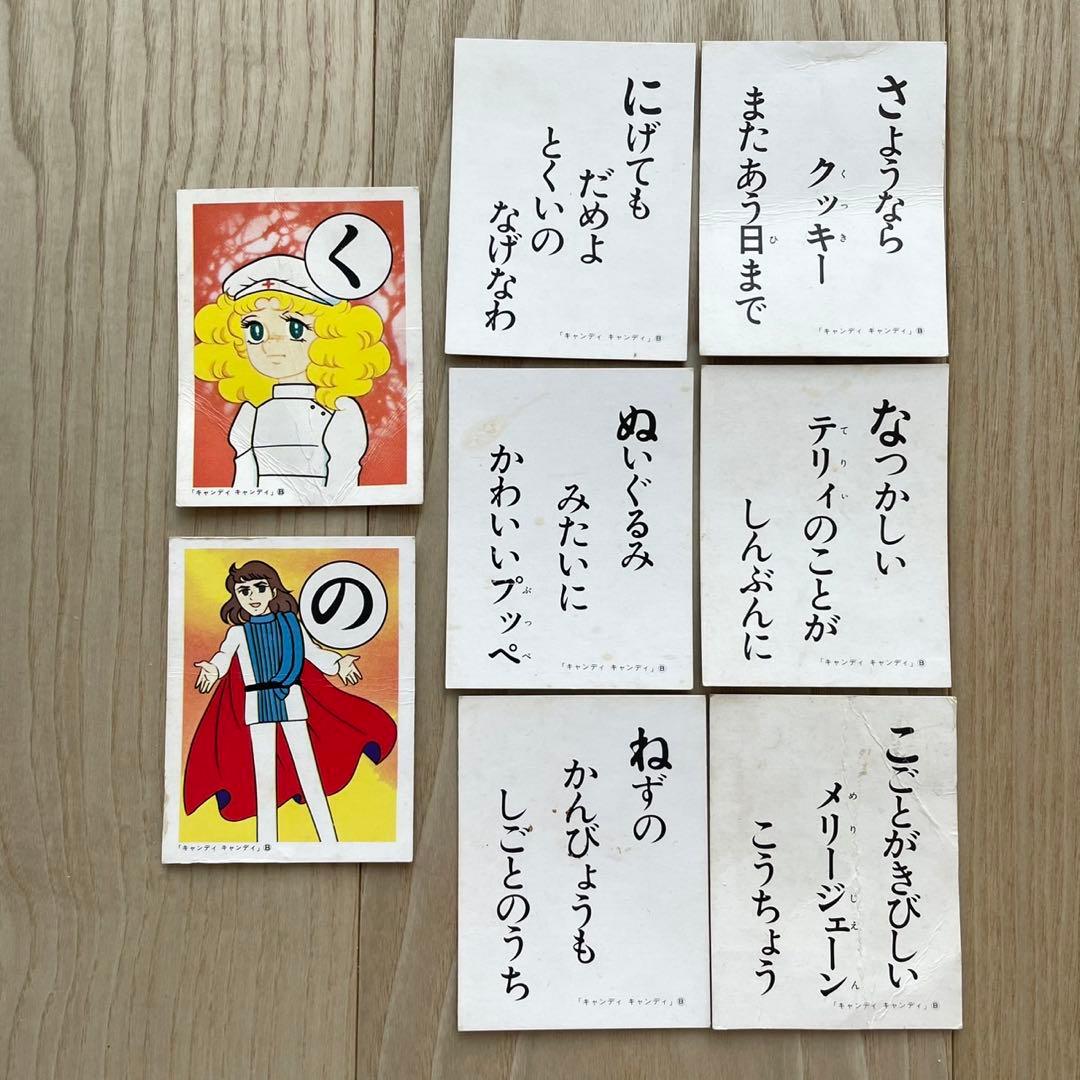 く
「キャンディ キャンディ」Ⓑ
の
「キャンディ キャンディ」Ⓑ
にげても
だめよ
とくいの
なげなわ
「キャンディ キャンディ」Ⓑ
さようなら
クッキー
くつき
またあう日まで
ひ
「キャンディ キャンディ」Ⓑ
ぬいぐるみ
みたいに
かわいいプッペ
ぷつぺ
「キャンディ キャンディ」Ⓑ
なつかしい
テリィのことが
てりい
しんぶんに
「キャンディ キャンディ」Ⓑ
ねずの
かんびょうも
しごとのうち
「キャンディ キャンディ」Ⓑ
こごとがきびしい
メリージェーン
めりじえん
こうちょう
「キャンディ キャンディ」Ⓑ